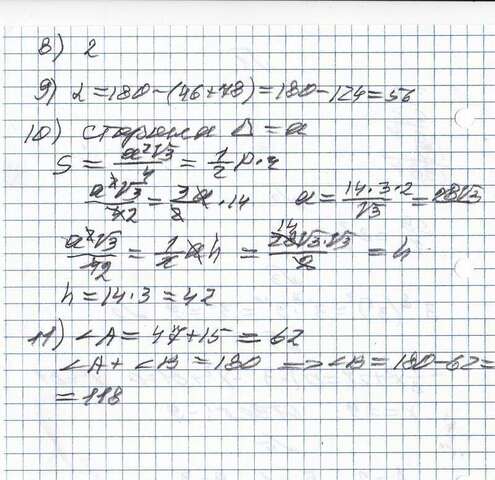 8) 2
9) α = 180 - (46 + 78) = 180 - 124 = 56
10) сторона Δ = a
S = a²√3/4 = 1/2 P · r
a²√3/42 = 3a/2 · 14 a = 14·3·2/√3 = 28√3
a²√3/42 = 1/2 a h = 28√3·√3/2 = h
14
h = 14 · 3 = 42
11) ∠A = 47 + 15 = 62
∠A + ∠B = 180 => ∠B = 180 - 62 =
= 118